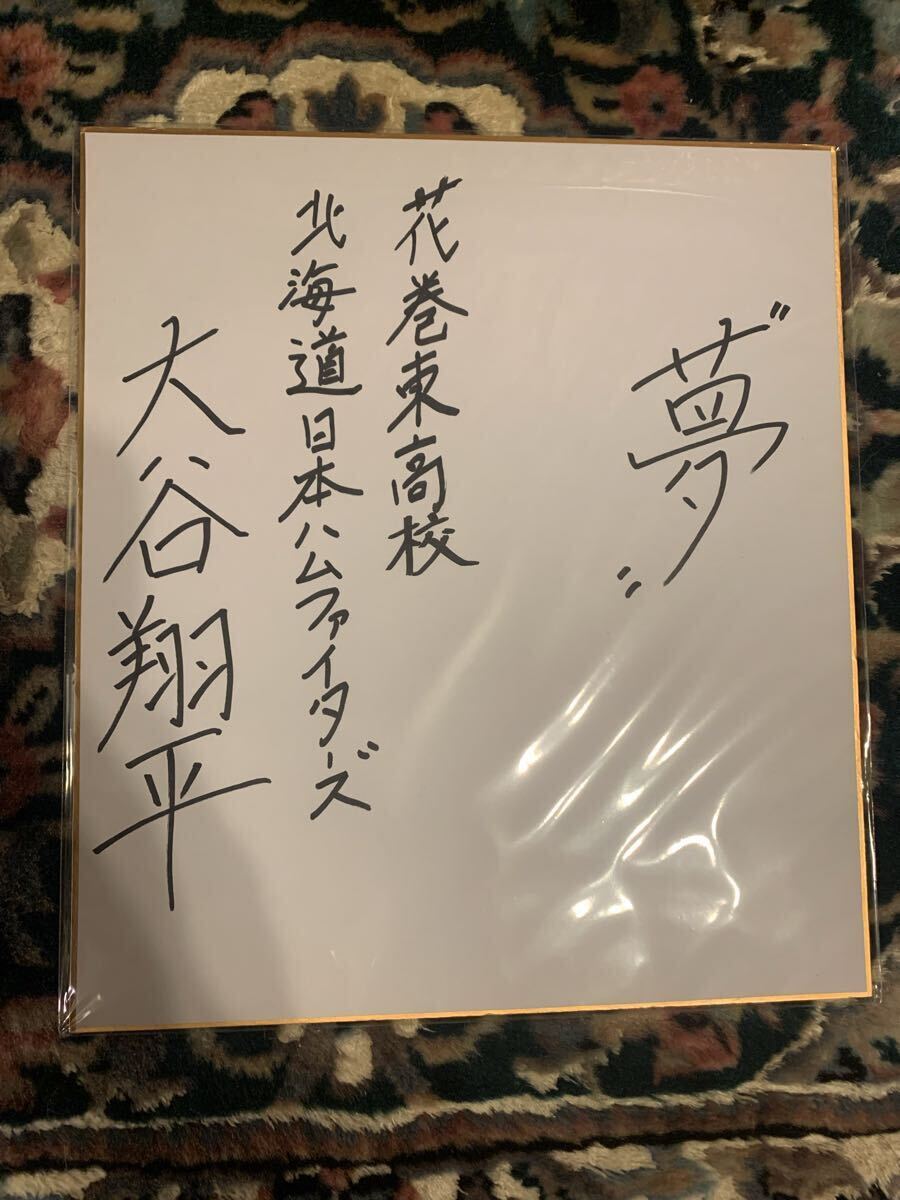 〝夢〟
花巻東高校
北海道日本ハムファイターズ
大谷翔平